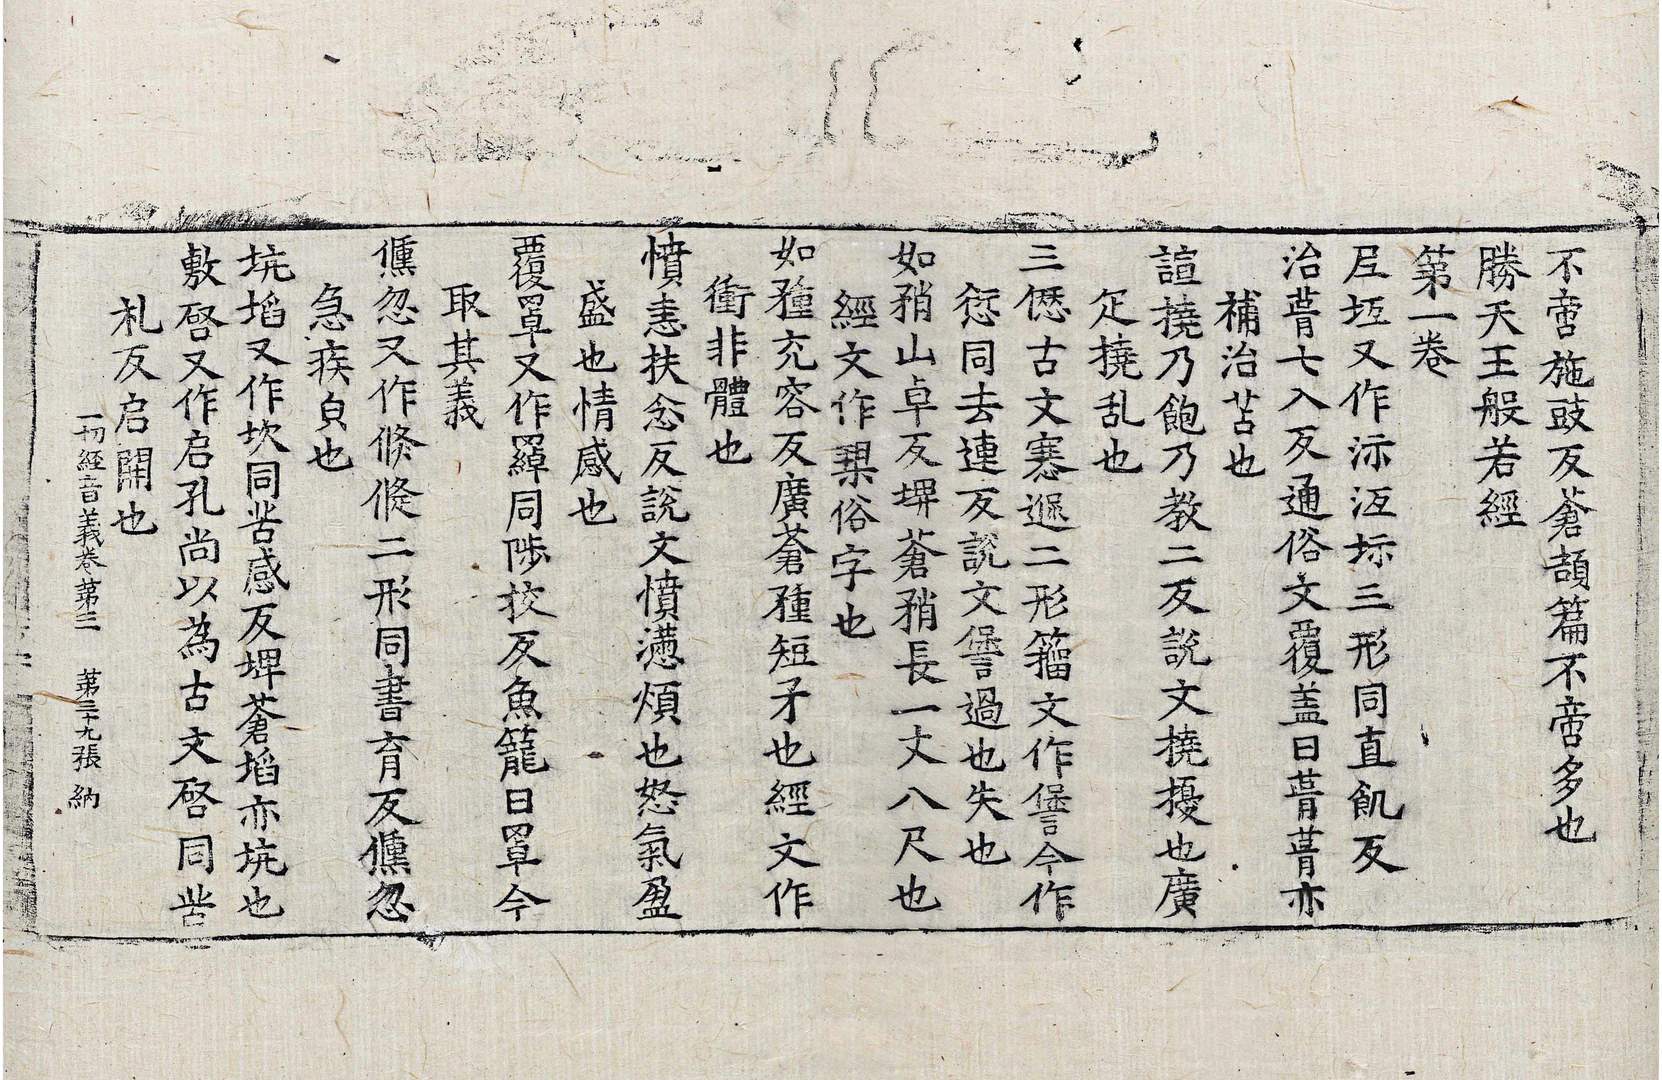 不啻施豉反蒼頡篇不啻多也
勝天王般若經
第一卷
㢑坘又作泜汦坁三形同直飢反
治葺七入反通俗文覆盖曰葺葺亦
補治苫也
諠撓乃飽乃教二反說文撓擾也廣
疋撓乱也
三𠎝古文寋𨔡二形籀文作䇂今作
𠍴同去連反說文過也失也
如矟山卓反埤蒼矟長一丈八尺也
經文作槊俗字也
如䂌充容反廣蒼䂌短矛也經文作
衝非體也
憤恚扶忿反說文憤懣煩也怒氣盈
盛也情感也
覆罩又作羄同陟挍反魚籠曰罩今
取其義
儵忽又作倏倐二形同書育反儵忽
急疾㒵也
坑埳又作坎同苦感反埤蒼埳亦坑也
敷啓又作启孔尚以為古文啓同苦
札反启開也
一切經音義卷第三 第三十九張 納